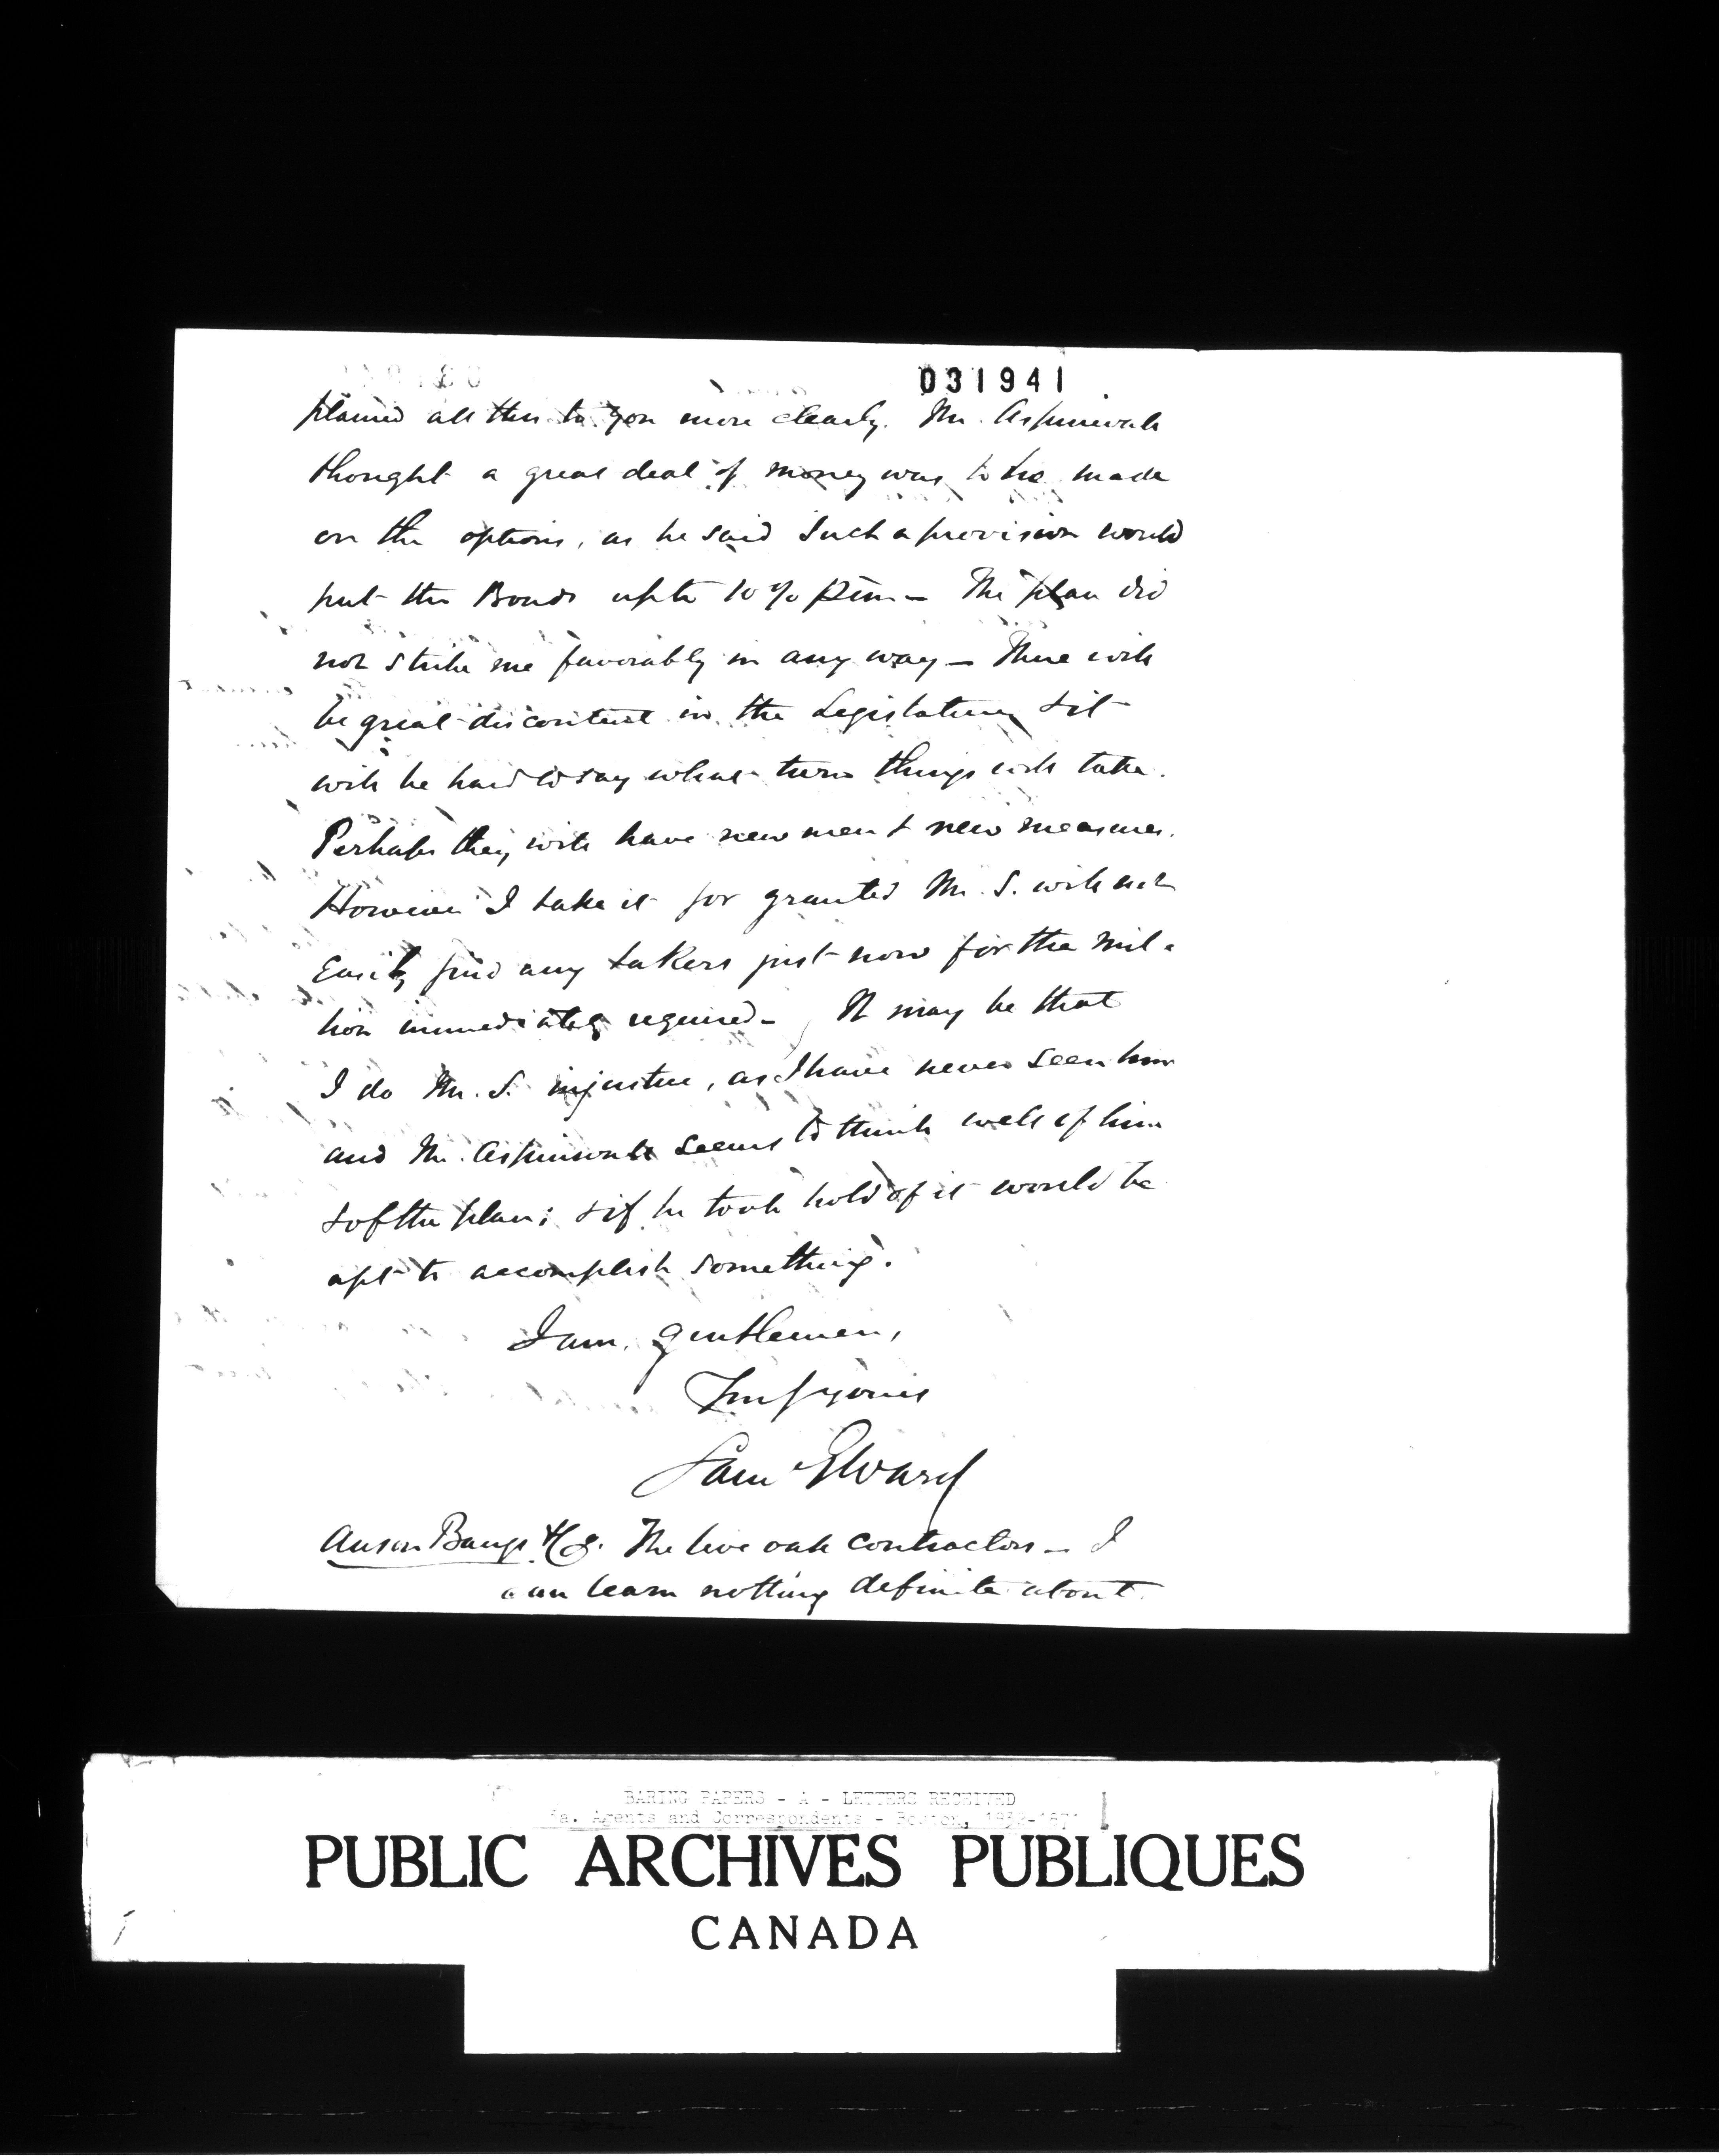 031941
plained all this to you more clearly. Mr. Aspinwall
thought a great deal of money was to be made
on the options, as he said such a provision would
put the Bonds up to 10% prm - The plan did
not strike me favorably in any way - There will
be great discontent in the Legislature, & it
will be hard to say what turn things will take.
Perhaps they will have new men & new measures.
However I take it for granted Mr. S. will not
Easily find any takers just now for the mil-
lion immediately required - It may be that
I do Mr. S. injustice, as I have never seen him
and Mr. Aspinwall seems to think well of him
& of the plan; & if he took hold of it would be
apt to accomplish something.
I am, gentlemen,
Truly yours
Sam G Ward
Anson Bangs & Co. The live oak contractors - I
can learn nothing definite about.
BARING PAPERS - A - LETTERS RECEIVED
Agents and Correspondents - Boston,
PUBLIC ARCHIVES PUBLIQUES
CANADA